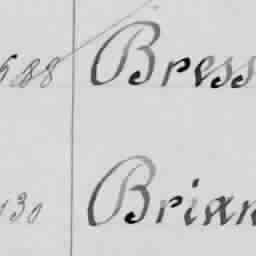 588 Bress
130 Brian